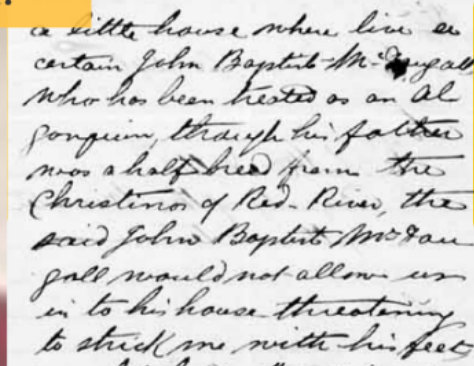 a little house where live a
certain John Baptist Mc Dugall
who has been treated as an Al
gonquin, though his father
was a half breed from the
Christinos of Red-River, the
said John Baptist McDou
gall would not allow us
in to his house threatening
to strick me with his feet